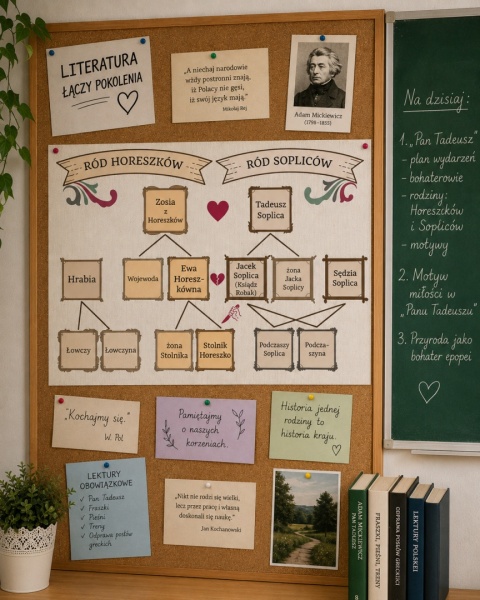 LITERATURA
ŁĄCZY POKOLENIA
„A niechaj narodowie
wżdy postronni znają,
iż Polacy nie gęsi,
iż swój język mają.”
Mikołaj Rej
Adam Mickiewicz
(1798–1855)
RÓD HORESZKÓW
RÓD SOPLICÓW
Zosia
z
Horeszków
Tadeusz
Soplica
Hrabia
Wojewoda
Ewa
Horesz-
kówna
Jacek
Soplica
(Ksiądz
Robak)
żona
Jacka
Soplicy
Sędzia
Soplica
Łowczy
Łowczyna
żona
Stolnika
Stolnik
Horeszko
Podczaszy
Soplica
Podcza-
szyna
"Kochajmy się."
W. Pol
Pamiętajmy
o naszych
korzeniach.
Historia jednej
rodziny to
historia kraju.
LEKTURY
OBOWIĄZKOWE
✓ Pan Tadeusz
✓ Fraszki
✓ Pieśni
✓ Treny
✓ Odprawa posłów
greckich
„Nikt nie rodzi się wielki,
lecz przez pracę i własną
doskonali się naukę.”
Jan Kochanowski
Na dzisiaj:
1. „Pan Tadeusz”
- plan wydarzeń
- bohaterowie
- rodziny:
Horeszków
i Sopliców
- motywy
2. Motyw
miłości w
„Panu Tadeuszu”
3. Przyroda jako
bohater epopei
ADAM MICKIEWICZ
PAN TADEUSZ
FRASZKI, PIEŚNI, TRENY
ODPRAWA POSŁÓW GRECKICH
LEKTURY POLSKEJ